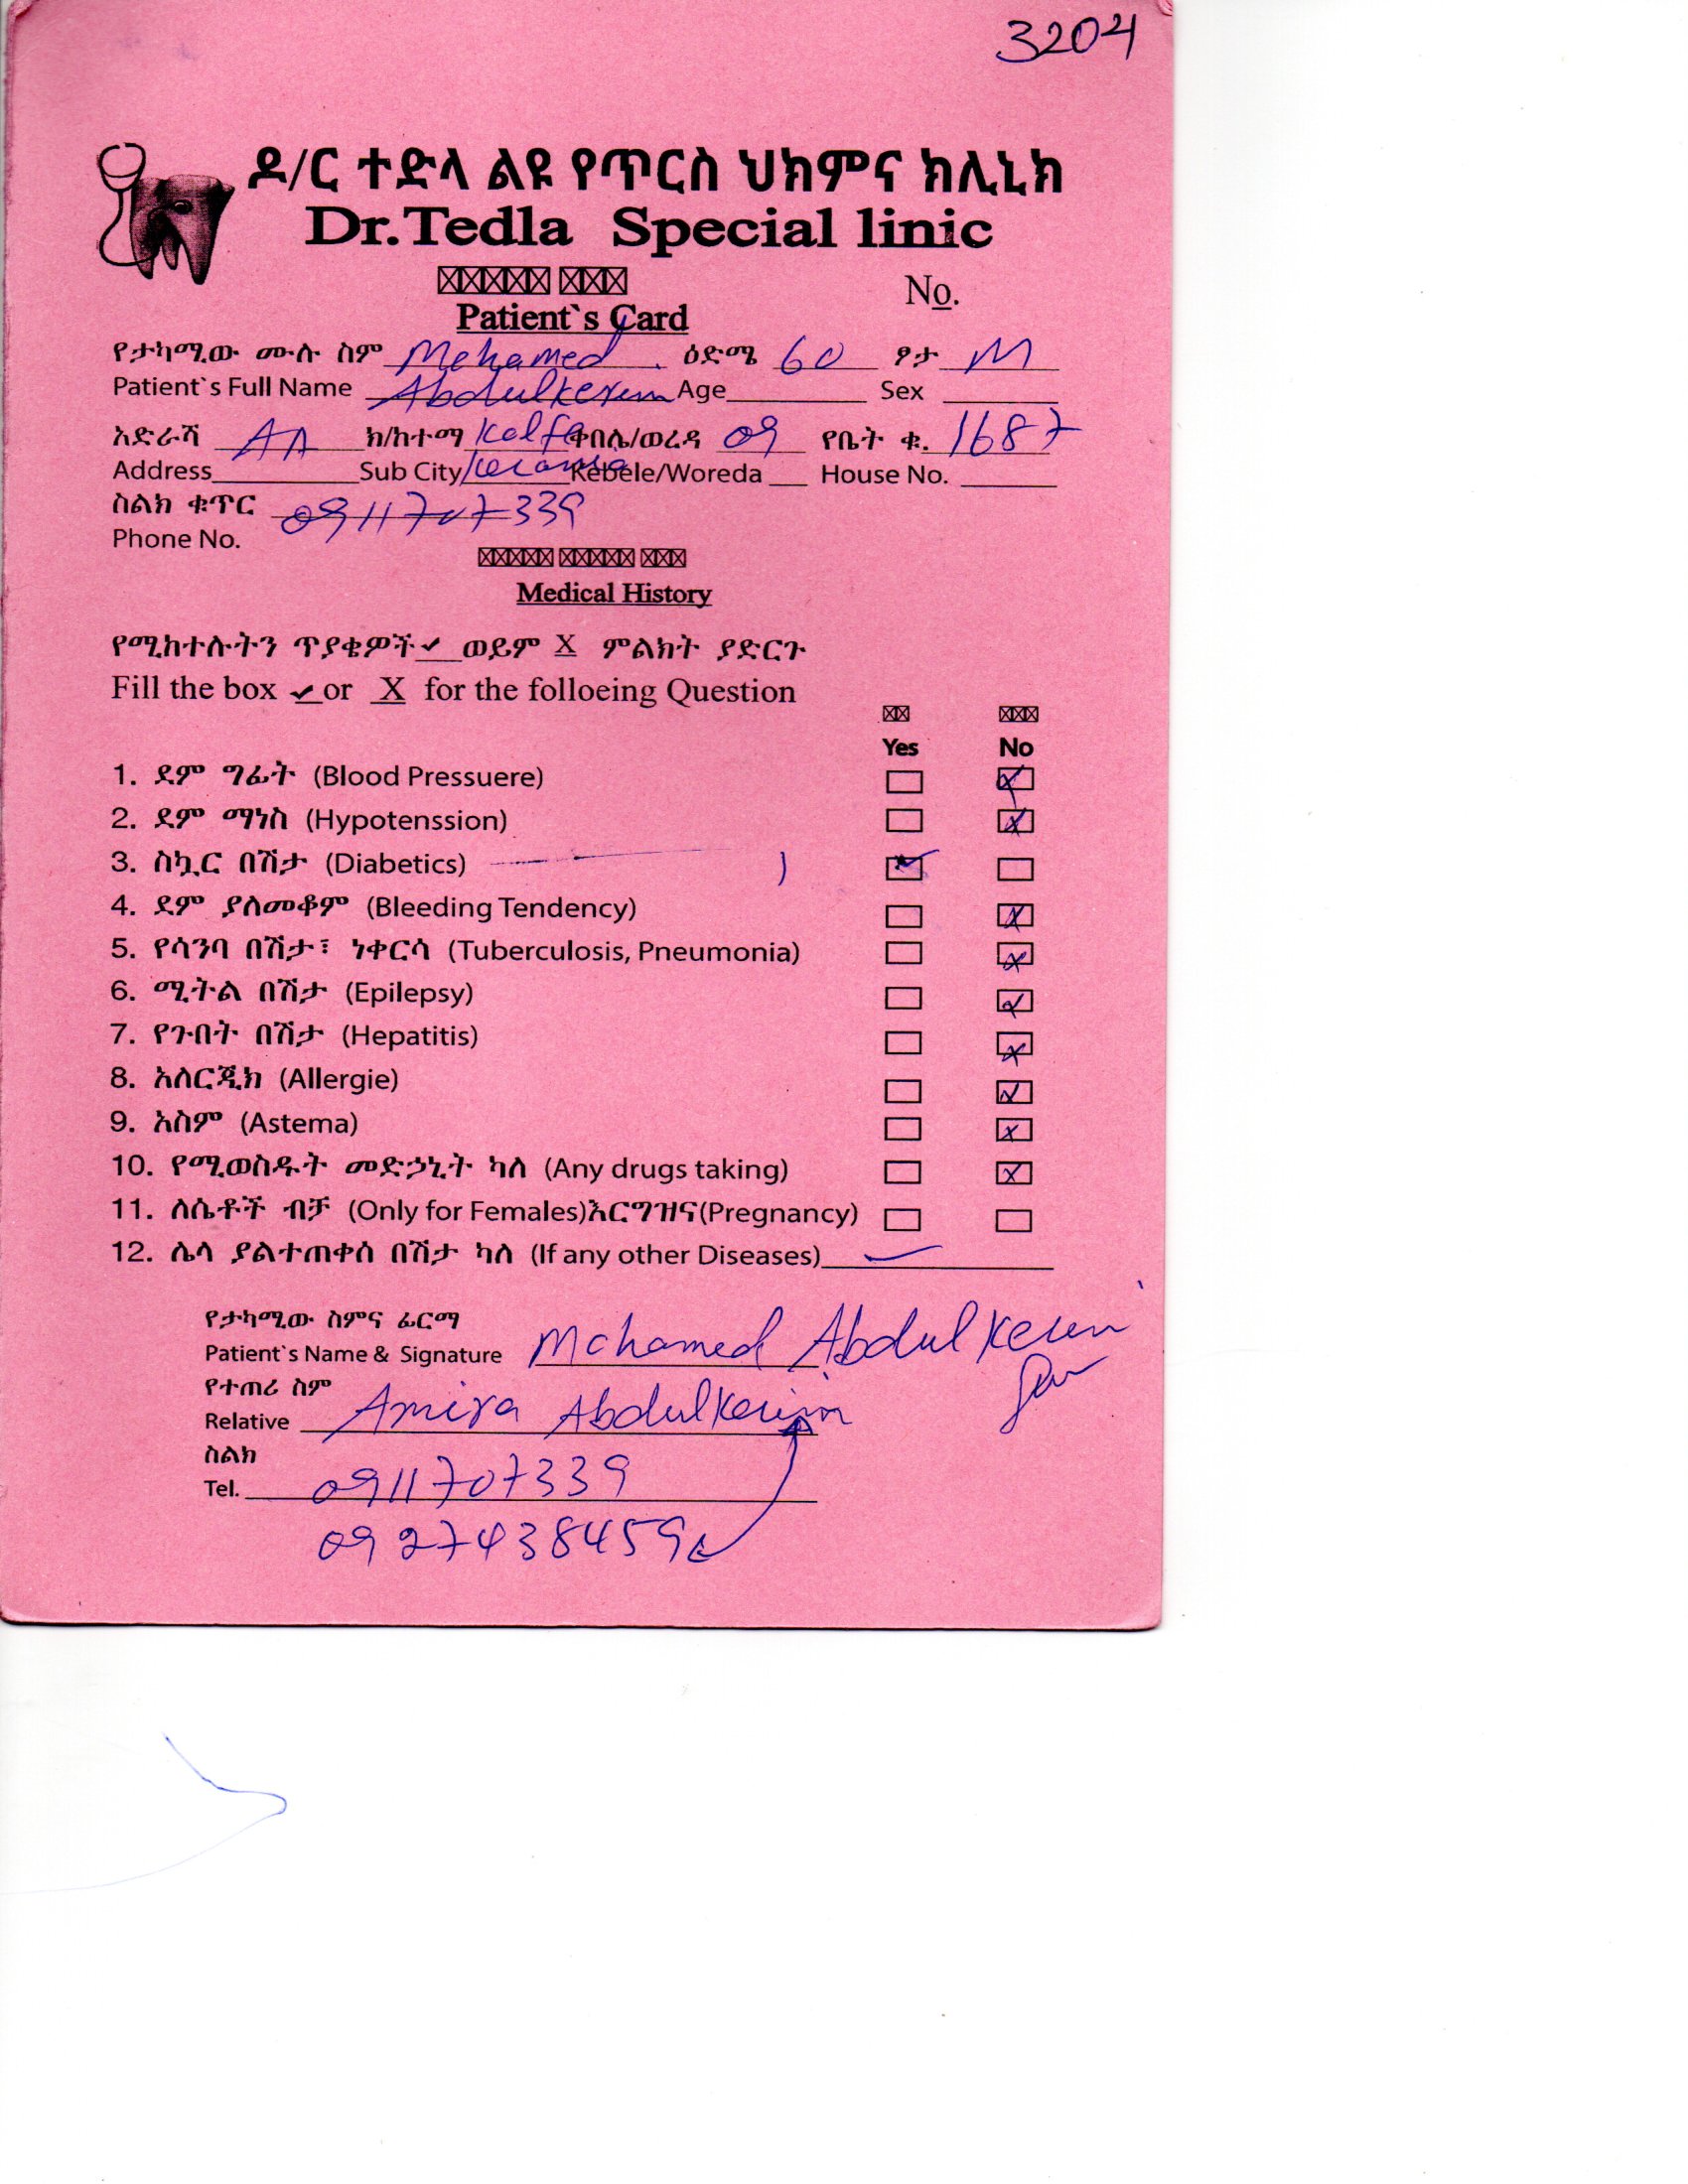 3204
ዶ/ር ተድላ ልዩ የጥርስ ህክምና ክሊኒክ
Dr.Tedla Special linic
No.
Patient`s Card
የታካሚው ሙሉ ስም Mohamed ዕድሜ 60 ፆታ M
Patient`s Full Name Abdulkerem Age Sex
አድራሻ AA ክ/ከተማ Kolfe ቀበሌ/ወረዳ 09 የቤት ቁ. 1687
Address Sub City Keranyo Kebele/Woreda House No.
ስልክ ቁጥር 0911707339
Phone No.
Medical History
የሚከተሉትን ጥያቄዎች ✓ ወይም X ምልክት ያድርጉ
Fill the box ✓ or X for the folloeing Question
Yes No
1. ደም ግፊት (Blood Pressuere)
2. ደም ማነስ (Hypotenssion)
3. ስኳር በሽታ (Diabetics)
4. ደም ያለመቆም (Bleeding Tendency)
5. የሳንባ በሽታ፣ ነቀርሳ (Tuberculosis, Pneumonia)
6. ሚትል በሽታ (Epilepsy)
7. የጉበት በሽታ (Hepatitis)
8. አለርጂክ (Allergie)
9. አስም (Astema)
10. የሚወስዱት መድኃኒት ካለ (Any drugs taking)
11. ለሴቶች ብቻ (Only for Females)እርግዝና(Pregnancy)
12. ሌላ ያልተጠቀሰ በሽታ ካለ (If any other Diseases)
የታካሚው ስምና ፊርማ
Patient`s Name & Signature Mohamed Abdulkerem
የተጠሪ ስም
Relative Amira Abdulkerim
ስልክ
Tel. 0911707339
0927438459